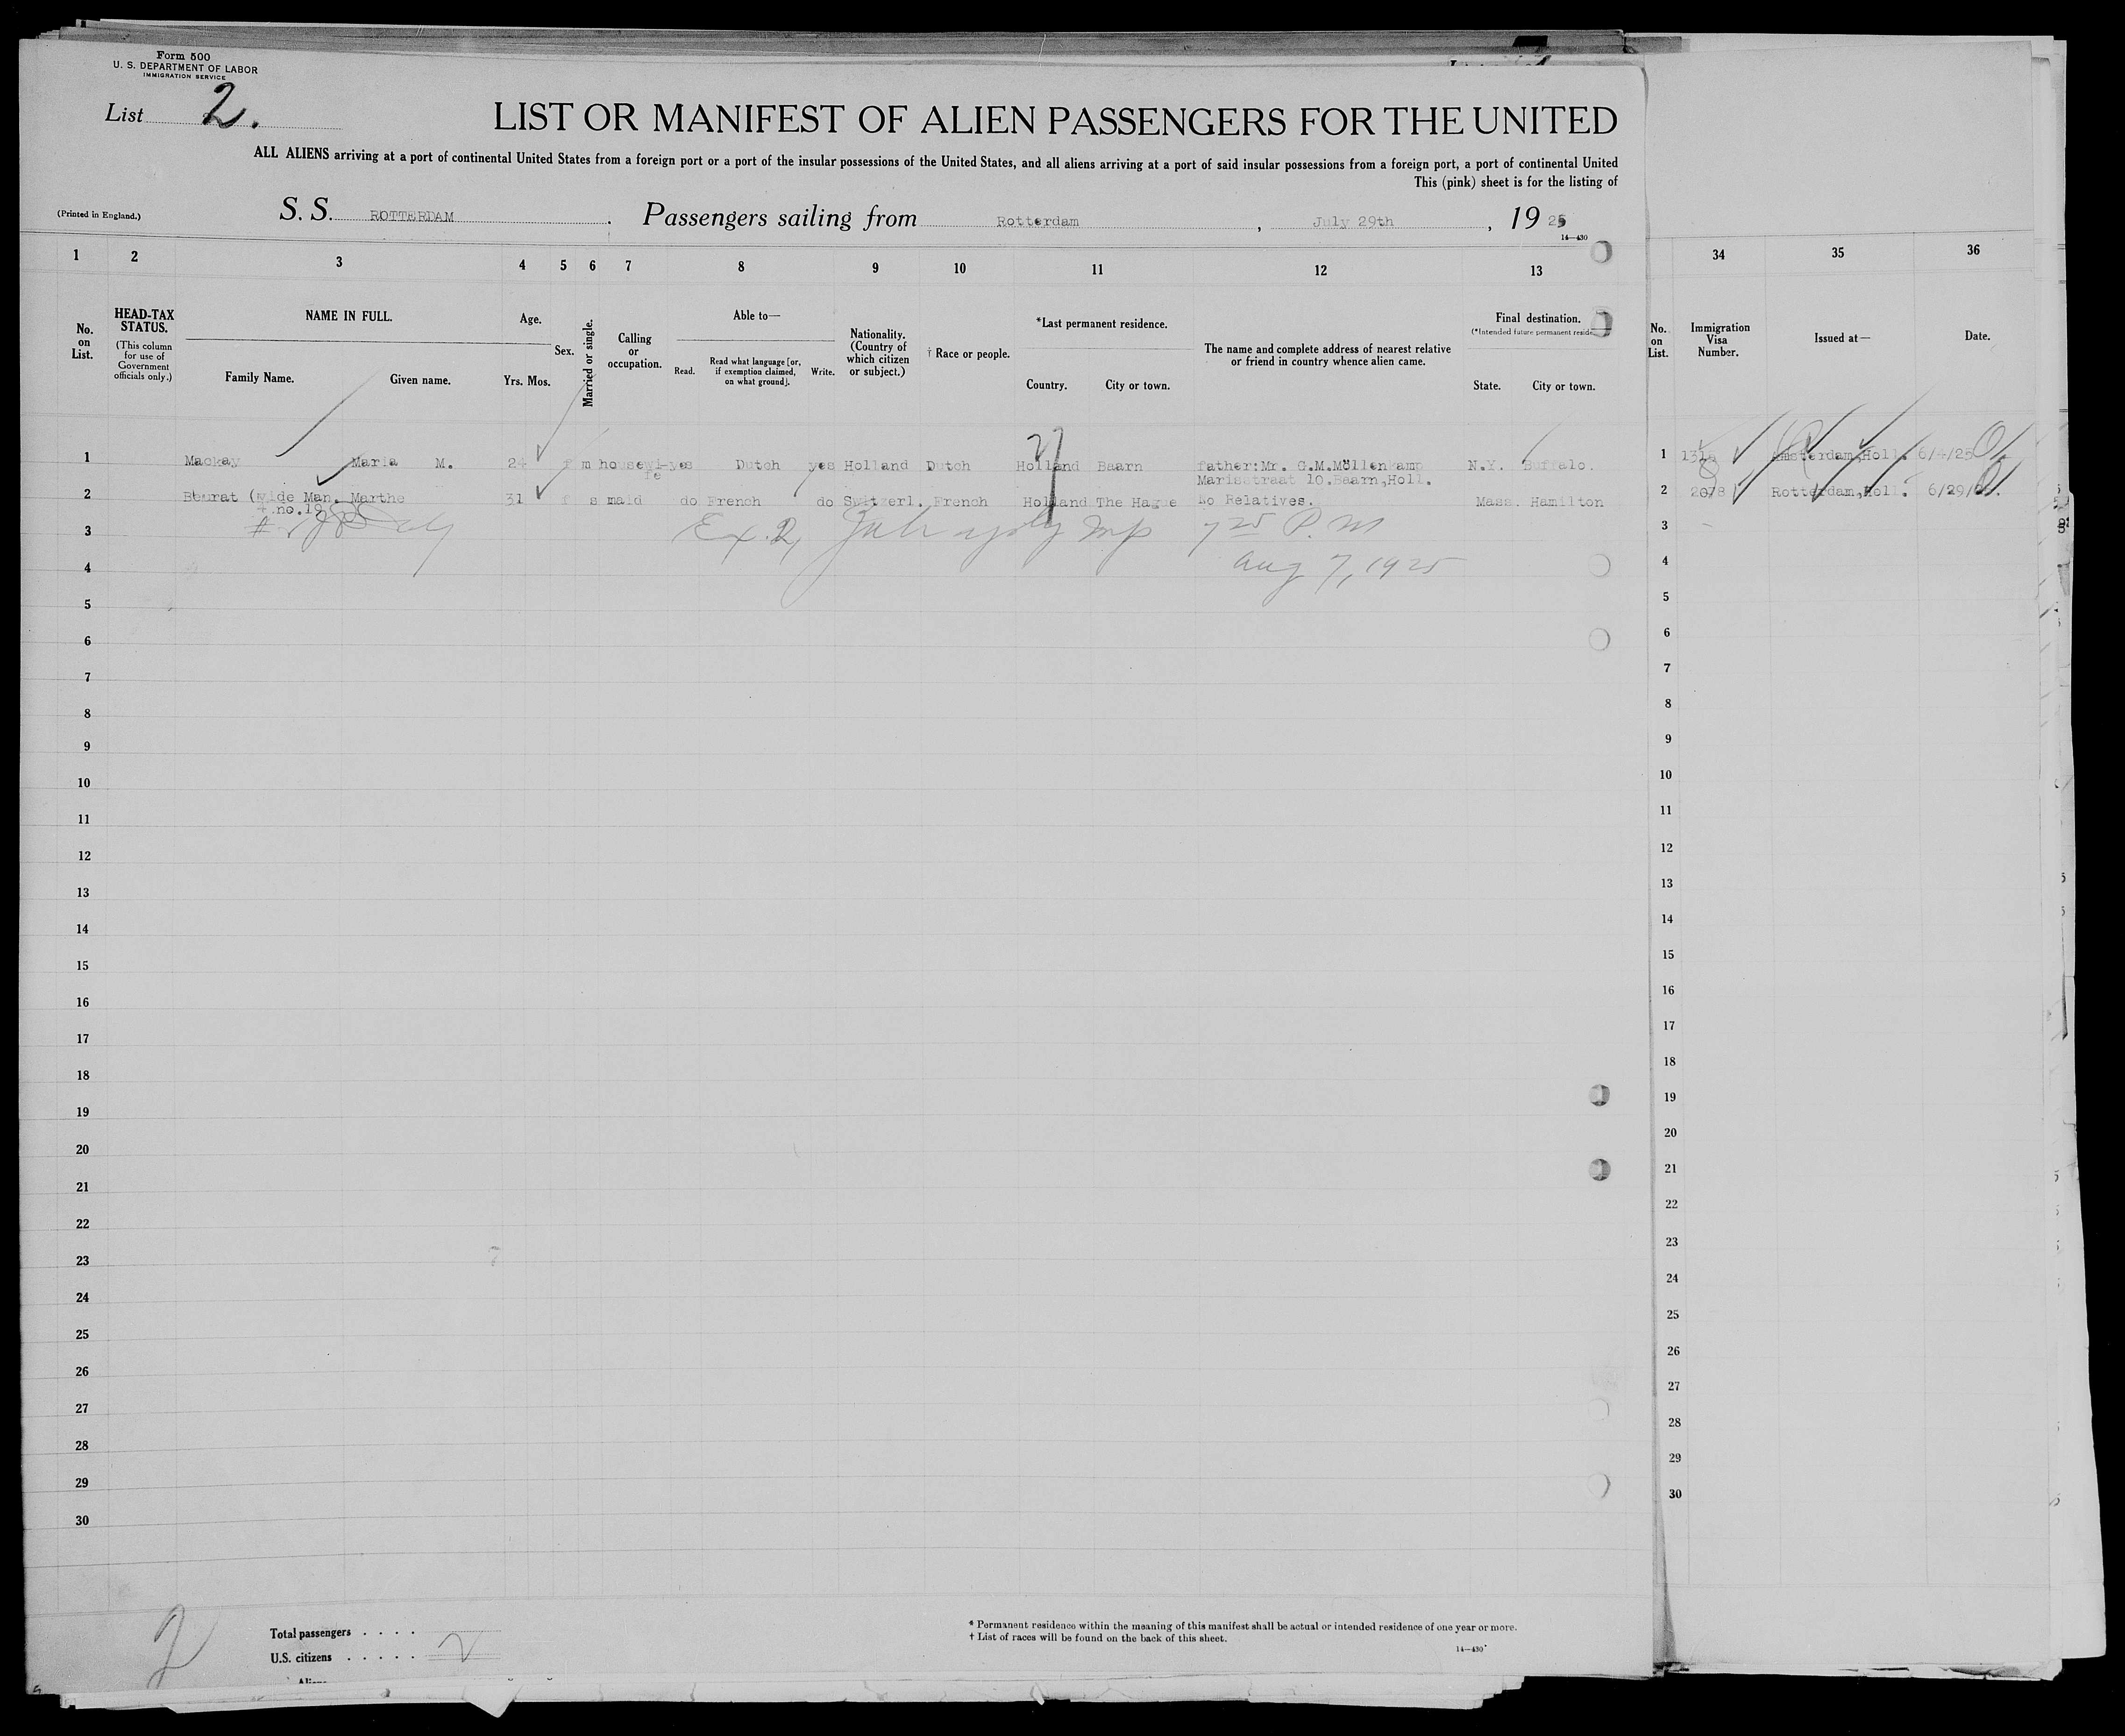 Form 500
U. S. DEPARTMENT OF LABOR
IMMIGRATION SERVICE
List 2.
LIST OR MANIFEST OF ALIEN PASSENGERS FOR THE UNITED
ALL ALIENS arriving at a port of continental United States from a foreign port or a port of the insular possessions of the United States, and all aliens arriving at a port of said insular possessions from a foreign port, a port of continental United
This (pink) sheet is for the listing of
(Printed in England.)
S. S. ROTTERDAM. Passengers sailing from Rotterdam, July 29th, 1925
14—430
1 2 3 4 5 6 7 8 9 10 11 12 13 34 35 36
No. on List.
HEAD-TAX STATUS.
(This column for use of Government officials only.)
NAME IN FULL.
Family Name. Given name.
Age.
Yrs. Mos.
Sex.
Married or single.
Calling or occupation.
Able to—
Read. Read what language [or, if exemption claimed, on what ground]. Write.
Nationality. (Country of which citizen or subject.)
† Race or people.
*Last permanent residence.
Country. City or town.
The name and complete address of nearest relative or friend in country whence alien came.
Final destination.
(*Intended future permanent reside
State. City or town.
No. on List.
Immigration Visa Number.
Issued at—
Date.
1 Mackay Maria M. 24 f m housewi-fe yes Dutch yes Holland Dutch Holland Baarn father:Mr. G.M.Möllenkamp N.Y. Buffalo. 1 Amsterdam,Holl.
Marisstraat 10.Baarn,Holl.
2 (wide Man. Marthe 31 f s maid do French do Switzerl. French Holland The Hague No Relatives. Mass. Hamilton 2 2078 Rotterdam,Holl. 6/29/
no.19
3 Ex. 2, 7 25 P.M 3
4 Aug 7, 1925 4
5 5
6 6
7 7
8 8
9 9
10 10
11 11
12 12
13 13
14 14
15 15
16 16
17 17
18 18
19 19
20 20
21 21
22 22
23 23
24 24
25 25
26 26
27 27
28 28
29 29
30 30
2
Total passengers . . . .
U.S. citizens . . . . . 2
* Permanent residence within the meaning of this manifest shall be actual or intended residence of one year or more.
† List of races will be found on the back of this sheet.
14—430